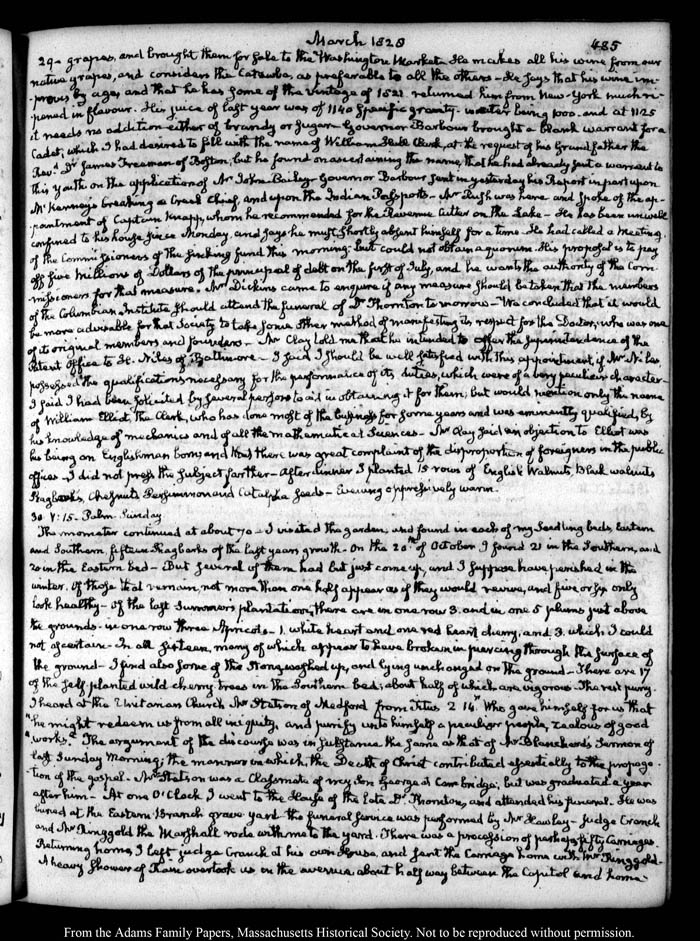 March 1828 485
29- grapes, and brought them for sale to the Washington Market. He makes all his wine from our
native grapes, and considers the Catawba, as preferable to all the others- He says that his wine im-
proves by age, and that he has some of the vintage of 1821 returned him from New-York much ri-
pened in flavour. His juice of last year was of 1140 specific gravity- water being 1000. and at 1125
it needs no addition either of brandy or sugar- Governor Barbour brought a blank warrant for a
Cadet, which I had desired to fill with the name of William Hull Clark, at the request of his Grandfather the
Revd. Dr James Freeman of Boston; but he found on ascertaining the name, that he had already sent a warrant to
this Youth on the application of Mr John Bailey- Governor Barbour sent in yesterday his Report in part upon
McKenney's breaking a Creek Chief, and upon the Indian Passports- Mr Rush was here and spoke of the ap-
pointment of Captain Knapp, whom he recommended for the Revenue Cutter on the Lake- He has been unwell
confined to his house since Monday, and says he must shortly absent himself for a time- He had called a Meeting
of the Commissioners of the sinking fund this morning; but could not obtain a quorum. His proposal is to pay
off five Millions of Dollars of the principal of debt on the first of July, and he wants the authority of the Com-
missioners for that measure. Mr Dickins came to enquire if any measure should be taken that the members
of the Columbian Institute should attend the funeral of Dr Thornton to morrow- We concluded that it would
be more advisable for that Society to take some other method of manifesting its respect for the Doctor, who was one
of its original members and founders- Mr Clay told me that he intended to offer the Superintendence of the
Patent Office to H. Niles of Baltimore- I said I should be well satisfied with this appointment, if Mr Niles
possessed the qualifications necessary for the performance of its duties, which were of a very peculiar character-
I said I had been solicited by several persons to aid in obtaining it for them; but would mention only the name
of William Elliot, the Clerk, who has done most of the business for some years and was eminently qualified, by
his knowledge of mechanics and of all the mathematical Sciences- Mr Clay said an objection to Elliot was
his being an Englishman born, and that there was great complaint of the disproportion of foreigners in the public
offices- I did not press the subject farther- After dinner I planted 15 rows of English Walnuts, Black walnuts
Shagbarks, Chesnuts Persimmon and Catalpa seeds- Evening oppressively warm.
30 V:15- Palm Sunday
Thermometer continued at about 70- I visited the garden, and found in each of my Seedling beds, Eastern
and Southern fifteen Shagbarks of the last years growth- On the 20th of October I found 21 in the Southern, and
20 in the Eastern bed- But several of them had but just come up, and I suppose have perished in the
winter. Of those that remain not more than one half appear as if they would revive, and five or six only
look healthy- Of the last Summers plantation, there are in one row 3. and in one 5 plums just above
the ground- in one row three Apricots- 1. white heart and one red heart cherry, and 3. which I could
not ascertain- In all fifteen, many of which appear to have broken in piercing through the surface of
the ground- I find also some of the stones washed up, and lying unchanged on the ground- There are 17
of the self planted wild cherry trees in the Southern bed; about half of which are vigorous- The rest puny-
I heard at the Unitarian Church Mr Stetson of Medford from Titus 2 14. Who gave himself for us that
"he might redeem us from all iniquity, and purify unto himself a peculiar people, zealous of good
"works." The argument of the discourse was in substance the same as that of Mr Blanchard's Sermon of
last Sunday Morning; the manner in which the Death of Christ contributed essentially to the propaga-
tion of the gospel- Mr Stetson was a Classmate of my Son George at Cambridge; but was graduated a year
after him- At one O'Clock I went to the House of the late Dr Thornton, and attended his funeral. He was
buried at the Eastern Branch grave yard the funeral service was performed by Mr Hawley- Judge Cranch
and Mr Ringgold the Marshall rode with me to the yard. There was a procession of perhaps fifty Carriages
Returning home, I left judge Cranch at his own House, and sent the Carriage home with Mr Ringgold-
A heavy shower of Rain overtook us in the avenue about half way between the Capitol and home-
From the Adams Family Papers, Massachusetts Historical Society. Not to be reproduced without permission.